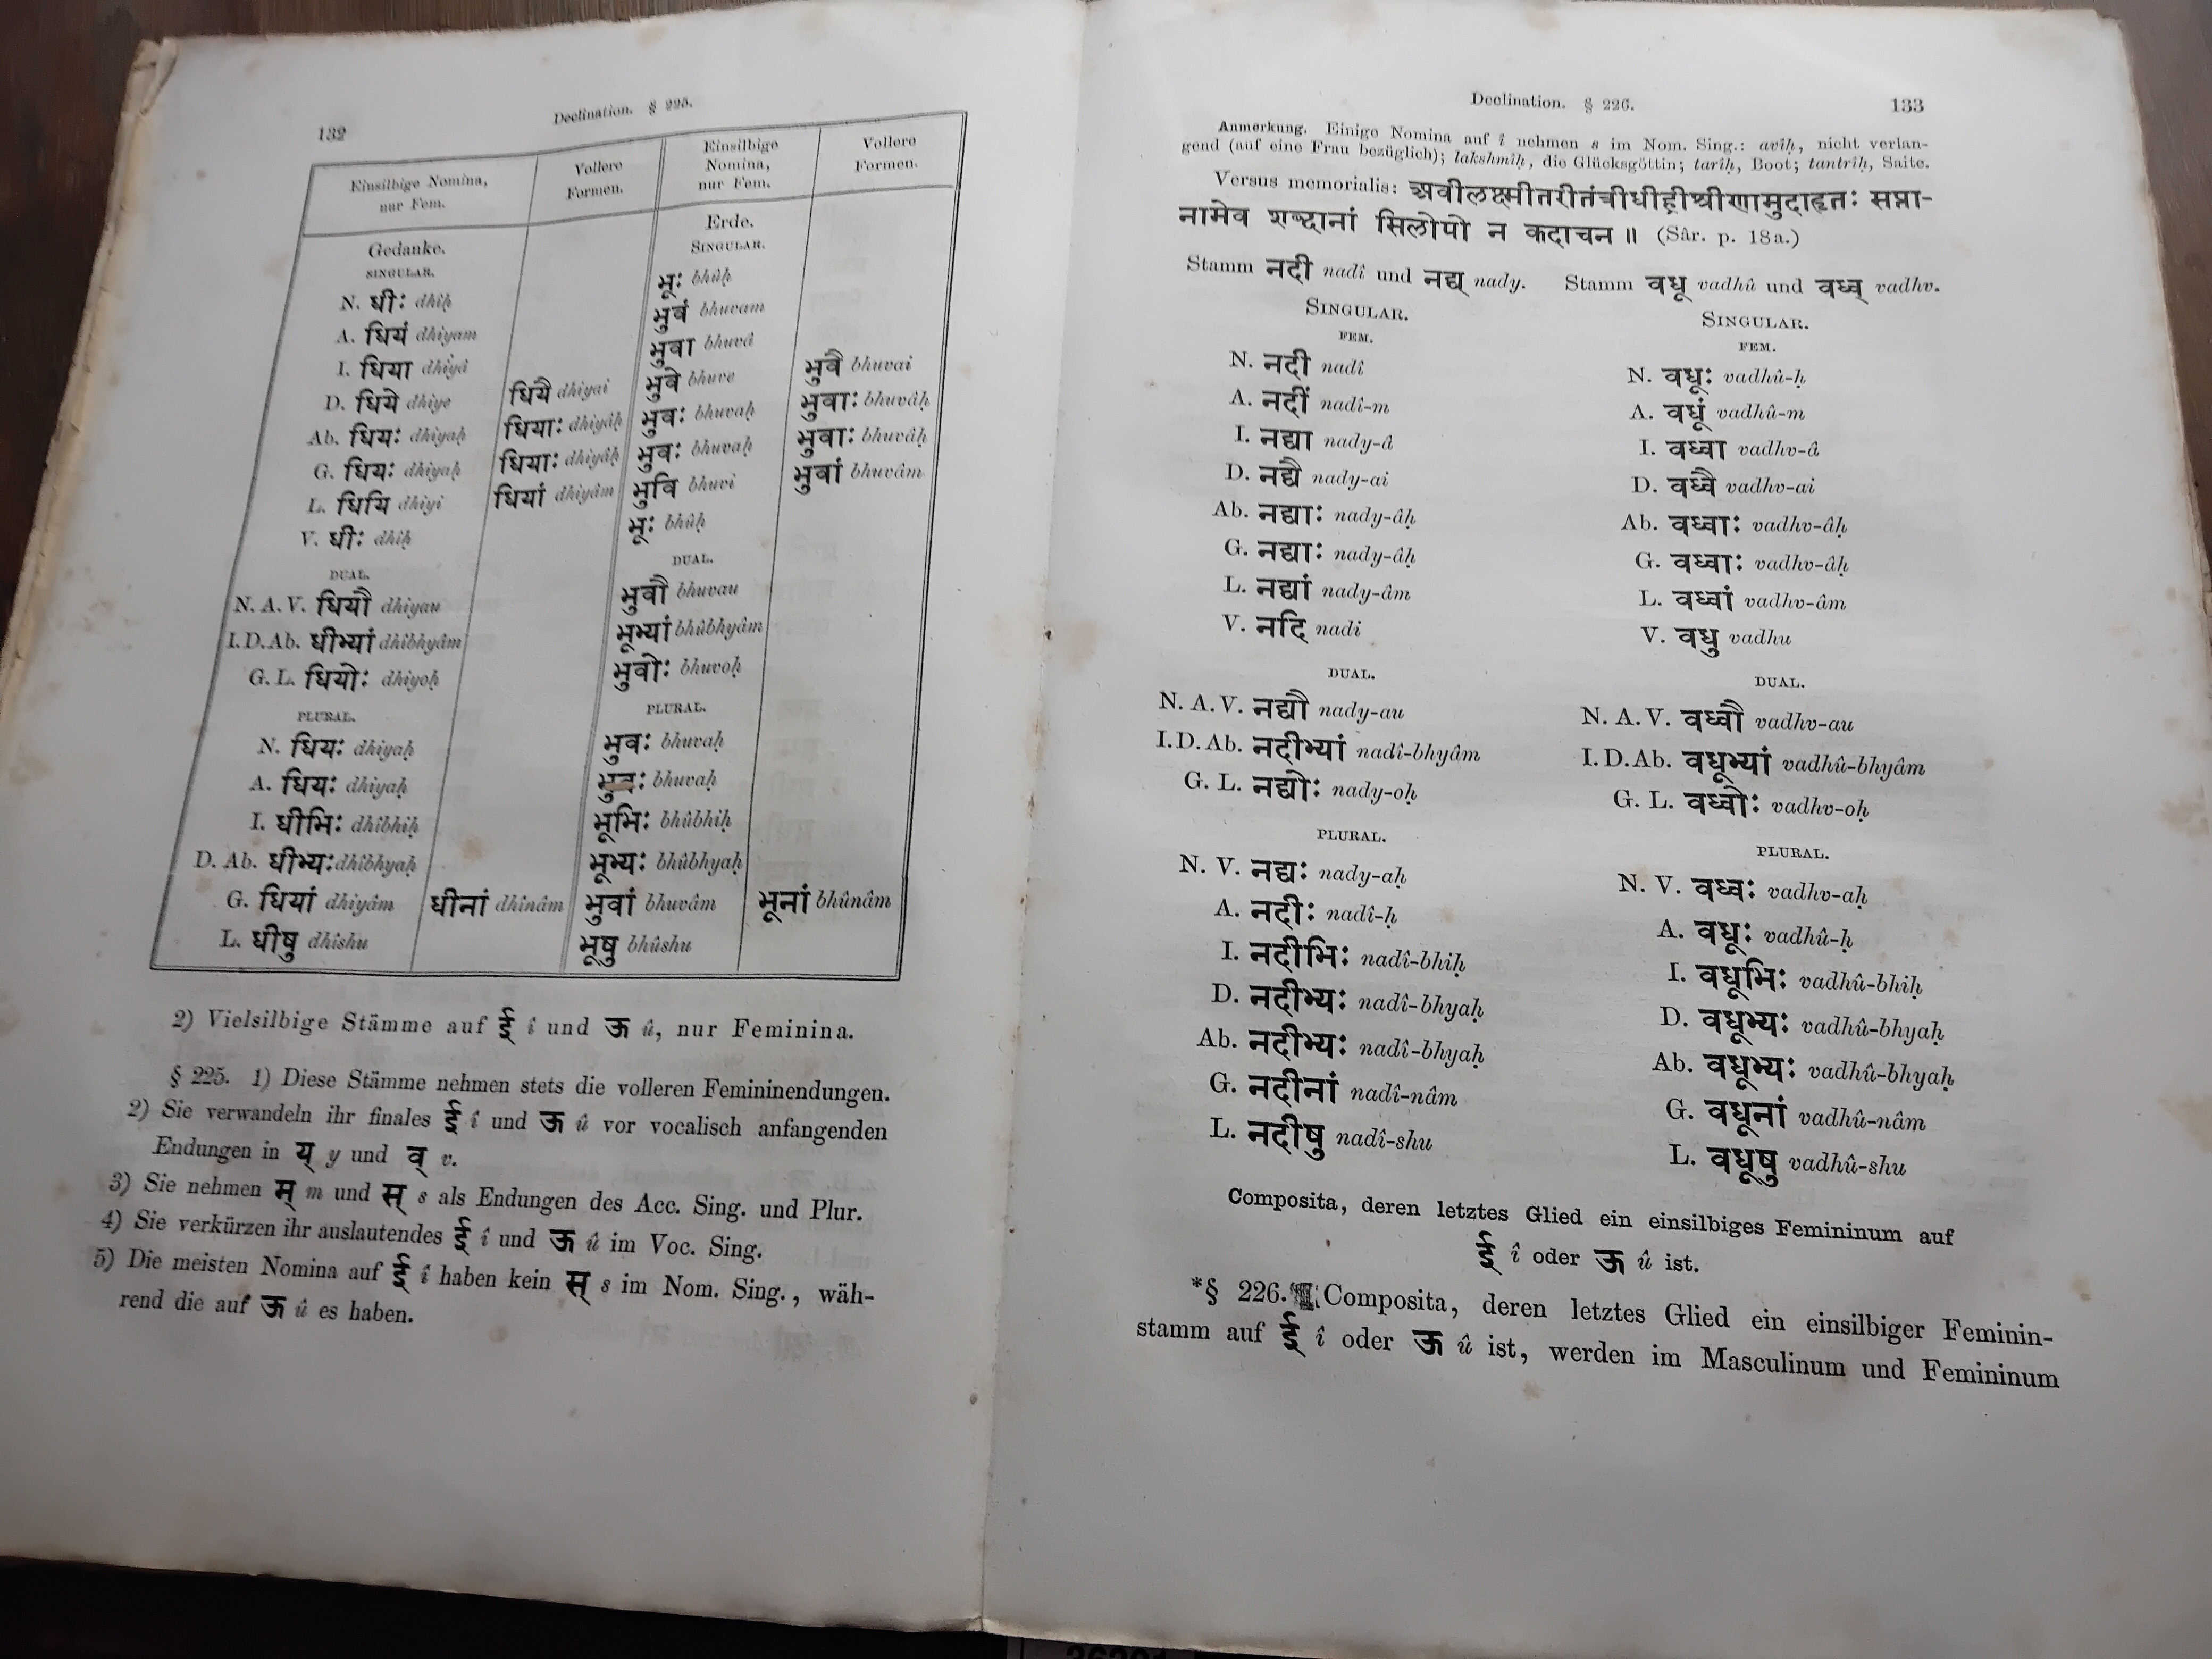 132
Declination. § 225.
Einsilbige Nomina, nur Fem.	Vollere Formen.	Einsilbige Nomina, nur Fem.	Vollere Formen.
Gedanke.		Erde.
SINGULAR.		SINGULAR.
N. धीः dhîḥ		भूः bhûḥ
A. धियं dhiyam		भुवं bhuvam
I. धिया dhiyâ		भुवा bhuvâ
D. धिये dhiye	धियै dhiyai	भुवे bhuve	भुवै bhuvai
Ab. धियः dhiyaḥ	धियाः dhiyâḥ	भुवः bhuvaḥ	भुवाः bhuvâḥ
G. धियः dhiyaḥ	धियाः dhiyâḥ	भुवः bhuvaḥ	भुवाः bhuvâḥ
L. धियि dhiyi	धियां dhiyâm	भुवि bhuvi	भुवां bhuvâm
V. धीः dhîḥ		भूः bhûḥ
DUAL.		DUAL.
N. A. V. धियौ dhiyau		भुवौ bhuvau
I.D.Ab. धीभ्यां dhîbhyâm		भूभ्यां bhûbhyâm
G. L. धियोः dhiyoḥ		भुवोः bhuvoḥ
PLURAL.		PLURAL.
N. धियः dhiyaḥ		भुवः bhuvaḥ
A. धियः dhiyaḥ		भुवः bhuvaḥ
I. धीभिः dhîbhiḥ		भूभिः bhûbhiḥ
D. Ab. धीभ्यः dhîbhyaḥ		भूभ्यः bhûbhyaḥ
G. धियां dhiyâm	धीनां dhînâm	भुवां bhuvâm	भूनां bhûnâm
L. धीषु dhîshu		भूषु bhûshu
2) Vielsilbige Stämme auf ई î und ऊ û, nur Feminina.
§ 225. 1) Diese Stämme nehmen stets die volleren Femininendungen.
2) Sie verwandeln ihr finales ई î und ऊ û vor vocalisch anfangenden
Endungen in य् y und व् v.
3) Sie nehmen म् m und स् s als Endungen des Acc. Sing. und Plur.
4) Sie verkürzen ihr auslautendes ई î und ऊ û im Voc. Sing.
5) Die meisten Nomina auf ई î haben kein स् s im Nom. Sing., wäh-
rend die auf ऊ û es haben.
Declination. § 226.
133
Anmerkung. Einige Nomina auf î nehmen s im Nom. Sing.: avîḥ, nicht verlan-
gend (auf eine Frau bezüglich); lakshmîḥ, die Glücksgöttin; tarîḥ, Boot; tantrîḥ, Saite.
Versus memorialis: अवीलक्ष्मीतरीतंत्रीधीह्रीश्रीणामुदाहृतः सप्ता-
नामेव शब्दानां सिलोपो न कदाचन ॥ (Sâr. p. 18a.)
Stamm नदी nadî und नद्य् nady.	Stamm वधू vadhû und वध्व् vadhv.
SINGULAR.	SINGULAR.
FEM.	FEM.
N. नदी nadî	N. वधूः vadhû-ḥ
A. नदीं nadî-m	A. वधूं vadhû-m
I. नद्या nady-â	I. वध्वा vadhv-â
D. नद्यै nady-ai	D. वध्वै vadhv-ai
Ab. नद्याः nady-âḥ	Ab. वध्वाः vadhv-âḥ
G. नद्याः nady-âḥ	G. वध्वाः vadhv-âḥ
L. नद्यां nady-âm	L. वध्वां vadhv-âm
V. नदि nadi	V. वधु vadhu
DUAL.	DUAL.
N. A. V. नद्यौ nady-au	N. A. V. वध्वौ vadhv-au
I.D.Ab. नदीभ्यां nadî-bhyâm	I.D.Ab. वधूभ्यां vadhû-bhyâm
G. L. नद्योः nady-oḥ	G. L. वध्वोः vadhv-oḥ
PLURAL.	PLURAL.
N. V. नद्यः nady-aḥ	N. V. वध्वः vadhv-aḥ
A. नदीः nadî-ḥ	A. वधूः vadhû-ḥ
I. नदीभिः nadî-bhiḥ	I. वधूभिः vadhû-bhiḥ
D. नदीभ्यः nadî-bhyaḥ	D. वधूभ्यः vadhû-bhyaḥ
Ab. नदीभ्यः nadî-bhyaḥ	Ab. वधूभ्यः vadhû-bhyaḥ
G. नदीनां nadî-nâm	G. वधूनां vadhû-nâm
L. नदीषु nadî-shu	L. वधूषु vadhû-shu
Composita, deren letztes Glied ein einsilbiges Femininum auf
ई î oder ऊ û ist.
*§ 226. Composita, deren letztes Glied ein einsilbiger Feminin-
stamm auf ई î oder ऊ û ist, werden im Masculinum und Femininum